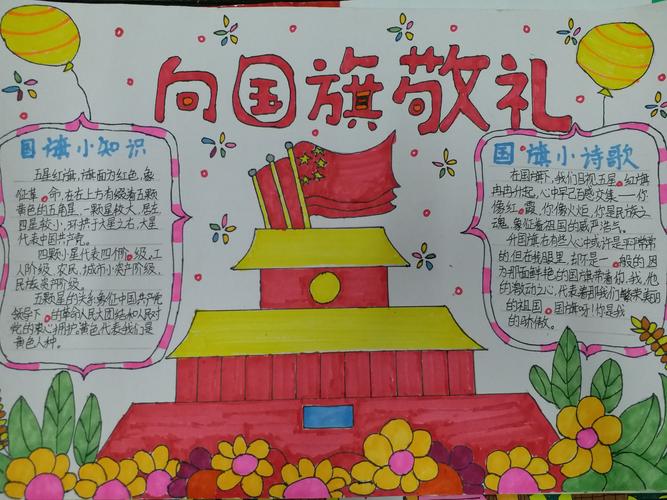 向国旗敬礼
国旗小知识
五星红旗,旗面为红色,象
征革命,在左上方有缀着五颗
黄色的五角星,一颗星较大,居左
四星较小,环拱于大星之右,大星
代表中国共产党。
四颗小星代表四个阶级,工
人阶级,农民,城市小资产阶级,
民族资产阶级。
五颗星的关系象征中国共产党
领导下的革命人民大团结和人民对
党的衷心拥护,黄色代表我们是
黄色人种。
国旗小诗歌
在国旗下,我们目视五星红旗
冉冉升起,心中早已百感交集——你
像红霞,你像火炬,你是民族之
魂,象征着祖国的威严浩气。
升国旗在有些人心中或许是平常
的但在我眼里,却不是一般的因
为那面鲜艳的国旗带着你,我,他
的激动之心,代表着那我们繁荣美丽
的祖国。国旗呀!你是我
的骄傲。